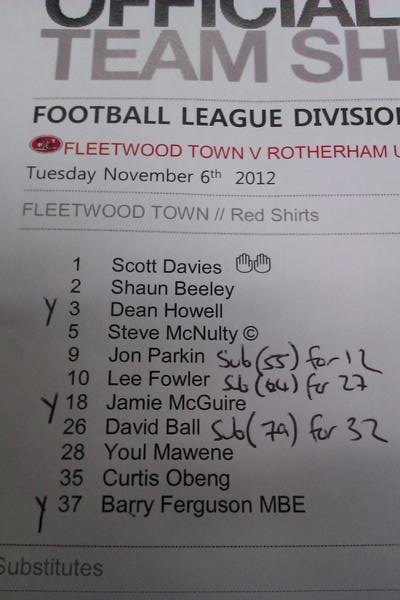 OFFICIAL
TEAM SH
FOOTBALL LEAGUE DIVISIO
FLEETWOOD TOWN V ROTHERHAM U
Tuesday November 6th 2012
FLEETWOOD TOWN // Red Shirts
1 Scott Davies
2 Shaun Beeley
Y 3 Dean Howell
5 Steve McNulty ©
9 Jon Parkin Sub (55) for 12
10 Lee Fowler Sub (64) for 27
Y 18 Jamie McGuire
26 David Ball Sub (79) for 32
28 Youl Mawene
35 Curtis Obeng
Y 37 Barry Ferguson MBE
Substitutes